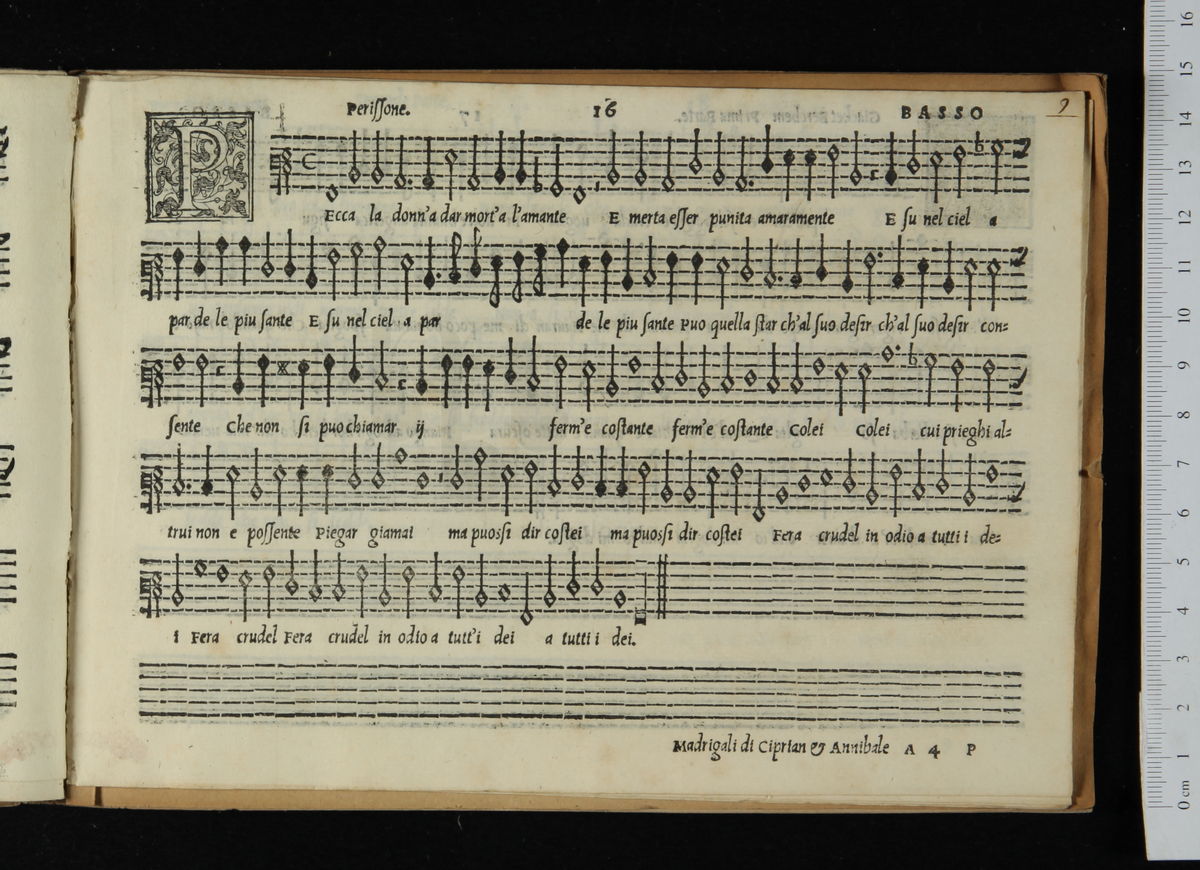 Perissone. 16 BASSO 9
PEcca la donn'a dar mort'a l'amante E merta esser punita amaramente E su nel ciel a
par de le piu sante E su nel ciel a par de le piu sante Puo quella star ch'al suo desir ch'al suo desir con=
sente Che non si puo chiamar ij ferm'e costante ferm'e costante Colei Colei cui prieghi al=
trui non e possente Piegar giamai ma puossi dir costei ma puossi dir costei Fera crudel in odio a tutti i de=
i Fera crudel Fera crudel in odio a tutt'i dei a tutti i dei.
Madrigali di Ciprian & Annibale A 4 P
16
15
14
13
12
11
10
9
8
7
6
5
4
3
2
1
0 cm